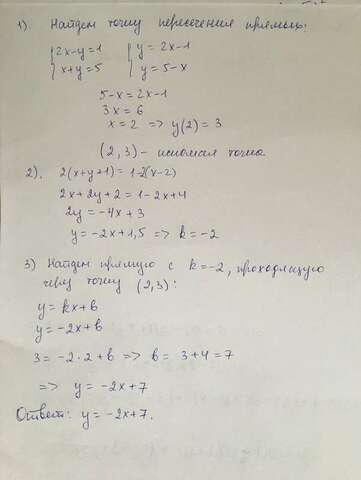 1). Найдем точку пересечения прямых:
{2x-y=1 {y=2x-1
{x+y=5 {y=5-x
5-x=2x-1
3x=6
x=2 => y(2)=3
(2,3) - искомая точка
2). 2(x+y+1)=1-2(x-2)
2x+2y+2=1-2x+4
2y=-4x+3
y=-2x+1,5 => k=-2
3) Найдем прямую с k=-2, проходящую
через точку (2,3):
y=kx+b
y=-2x+b
3=-2·2+b => b=3+4=7
=> y=-2x+7
Ответ: y=-2x+7.